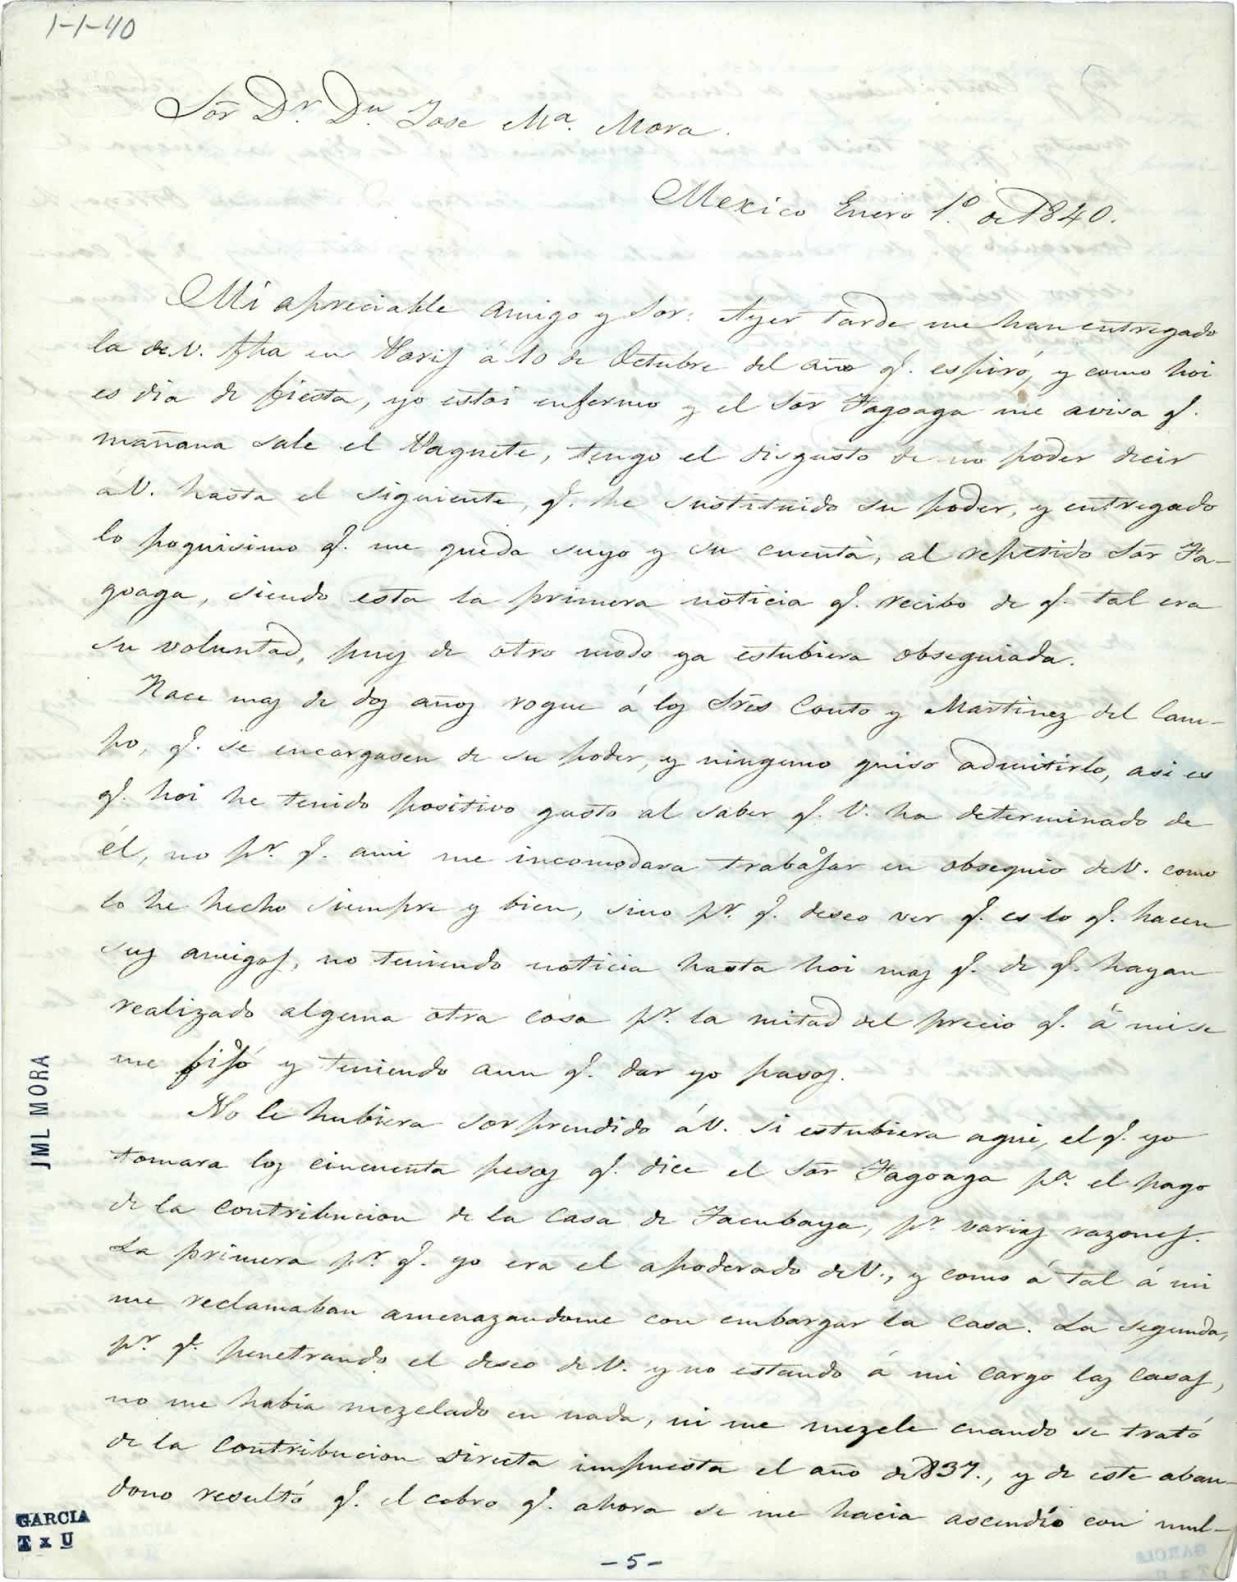 1-1-40
Sõr Dr. Dn Jose Ma. Mora.
Mexico Enero 1º. de 1840.
Mi apreciable amigo y Sor: Ayer tarde me han entregado
la de V. fha en Paris á 10 de Octubre del año q. espiró, y como hoi
es dia de fiesta, yo estoi enfermo y el Sõr Fagoaga me avisa q.
mañana sale el Paquete, tengo el disgusto de no poder decir
á V. hasta el siguiente, q. he sustituido su poder, y entregado
lo poquisimo q. me queda suyo y su cuenta, al repetido Sõr Fa-
goaga, siendo esta la primera noticia q. recibo de q. tal era
su voluntad, pues de otro modo ya estubiera obsequiada.
Hace mas de dos años rogue á los Sres Couto y Martinez del Cam-
po, q. se encargasen de su poder, y ninguno quiso admitirlo, asi es
q. hoi he tenido positivo gusto al saber q. V. ha determinado de
él, no pr. q. ami me incomodara trabajar en obsequio de V. como
lo he hecho siempre y bien, sino pr. q. deseo ver q. es lo q. hacen
sus amigos, no teniendo noticia hasta hoi mas q. de q. hayan
realizado alguna otra cosa pr. la mitad del precio q. á mi se
me fijó y teniendo aun q. dar yo pasos.
No le hubiera sorprendido á V. si estubiera aqui, el q. yo
tomara los cincuenta pesos q. dice el Sõr Fagoaga pa. el pago
de la contribucion de la casa de Tacubaya, pr. varias razones.
La primera pr. q. yo era el apoderado de V., y como á tal á mi
me reclamaban amenazandome con embargar la casa. La segunda,
pr. q. penetrando el deseo de V. y no estando á mi cargo las casas,
no me habia mezclado en nada, ni me mezcle cuando se trató
de la contribucion directa impuesta el año de 837., y de este aban-
dono resultó q. el cobro q. ahora se me hacia ascendío con mul-
JML MORA
GARCIA
T x U
- 5 -